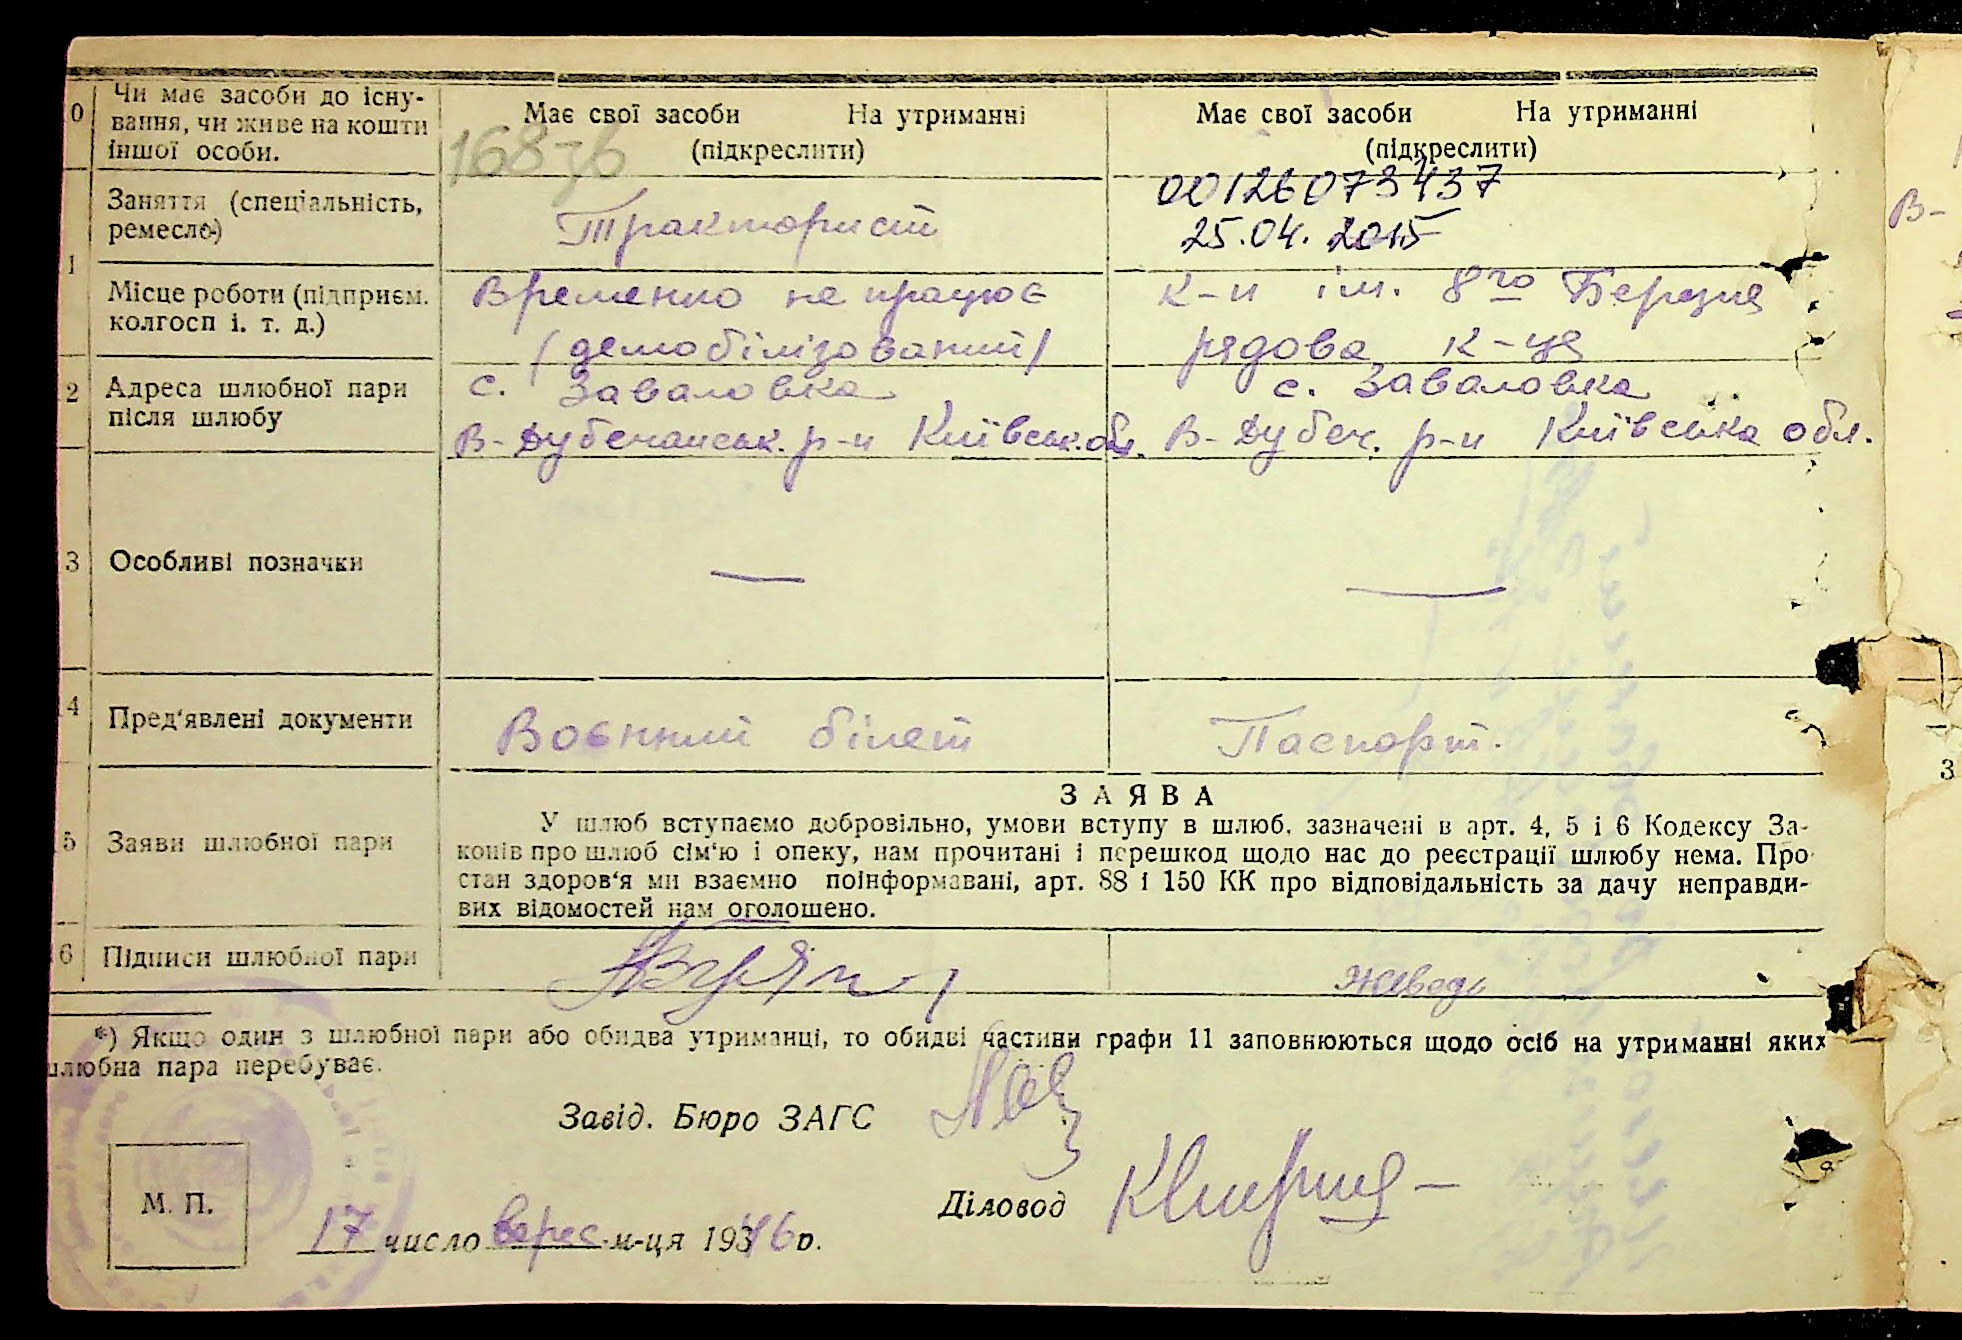 0 Чи має засоби до існу-
вання, чи живе на кошти
іншої особи.
Має свої засоби На утриманні
(підкреслити)
Має свої засоби На утриманні
(підкреслити)
168зв
Заняття (спеціальність,
ремесло)
Тракторист
00126073437
25.04. 2015
1
Місце роботи (підприєм.
колгосп і. т. д.)
Временно не працює
/демобілізований/
к-п ім. 8го Березня
рядова к-ця
2 Адреса шлюбної пари
після шлюбу
с. Заваловка
В-Дубечанськ. р-н Київськ. обл.
с. Заваловка
В-Дубеч. р-н Київська обл.
3 Особливі позначки
—
—
4 Пред'явлені документи
Воєнний білет
Паспорт.
5 Заяви шлюбної пари
ЗАЯВА
У шлюб вступаємо добровільно, умови вступу в шлюб, зазначені в арт. 4, 5 і 6 Кодексу За-
конів про шлюб сім'ю і опеку, нам прочитані і перешкод щодо нас до реєстрації шлюбу нема. Про
стан здоров'я ми взаємно поінформавані, арт. 88 і 150 КК про відповідальність за дачу неправди-
вих відомостей нам оголошено.
6 Підписи шлюбної пари
*) Якщо один з шлюбної пари або обидва утриманці, то обидві частини графи 11 заповнюються щодо осіб на утриманні яких
шлюбна пара перебуває.
Завід. Бюро ЗАГС
М. П.
Діловод
17 число верес. м-ця 1946 р.
В-
3